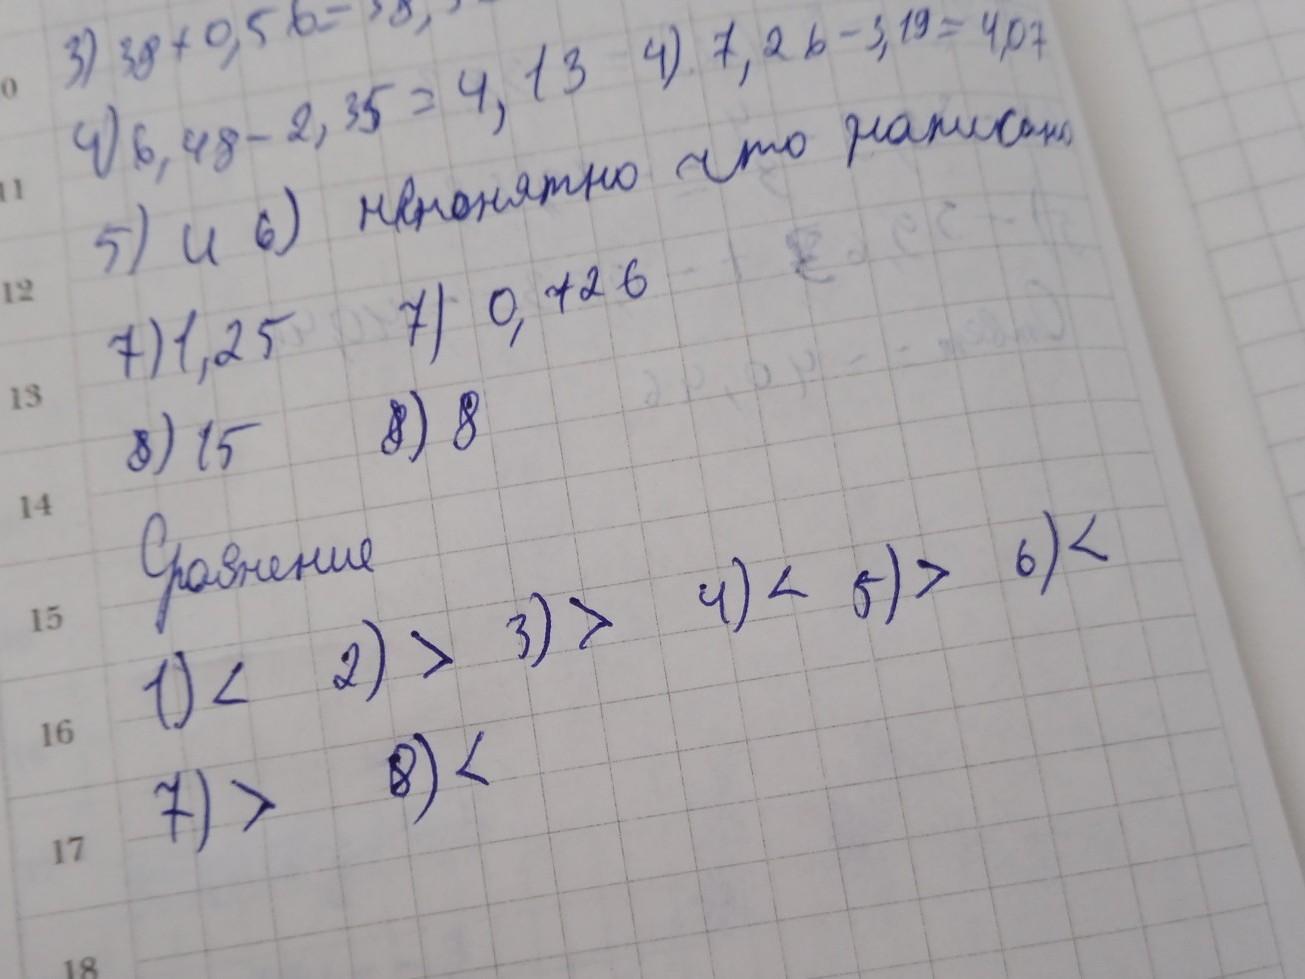 3) 38 + 0,56 = 38,5
4) 6,48 - 2,35 = 4,13 4) 7,26 - 3,19 = 4,07
5) и 6) непонятно что написано
7) 1,25 7) 0,726
8) 15 8) 8
Сравнение
1) < 2) > 3) > 4) < 5) > 6) <
7) > 8) <
0
11
12
13
14
15
16
17
18